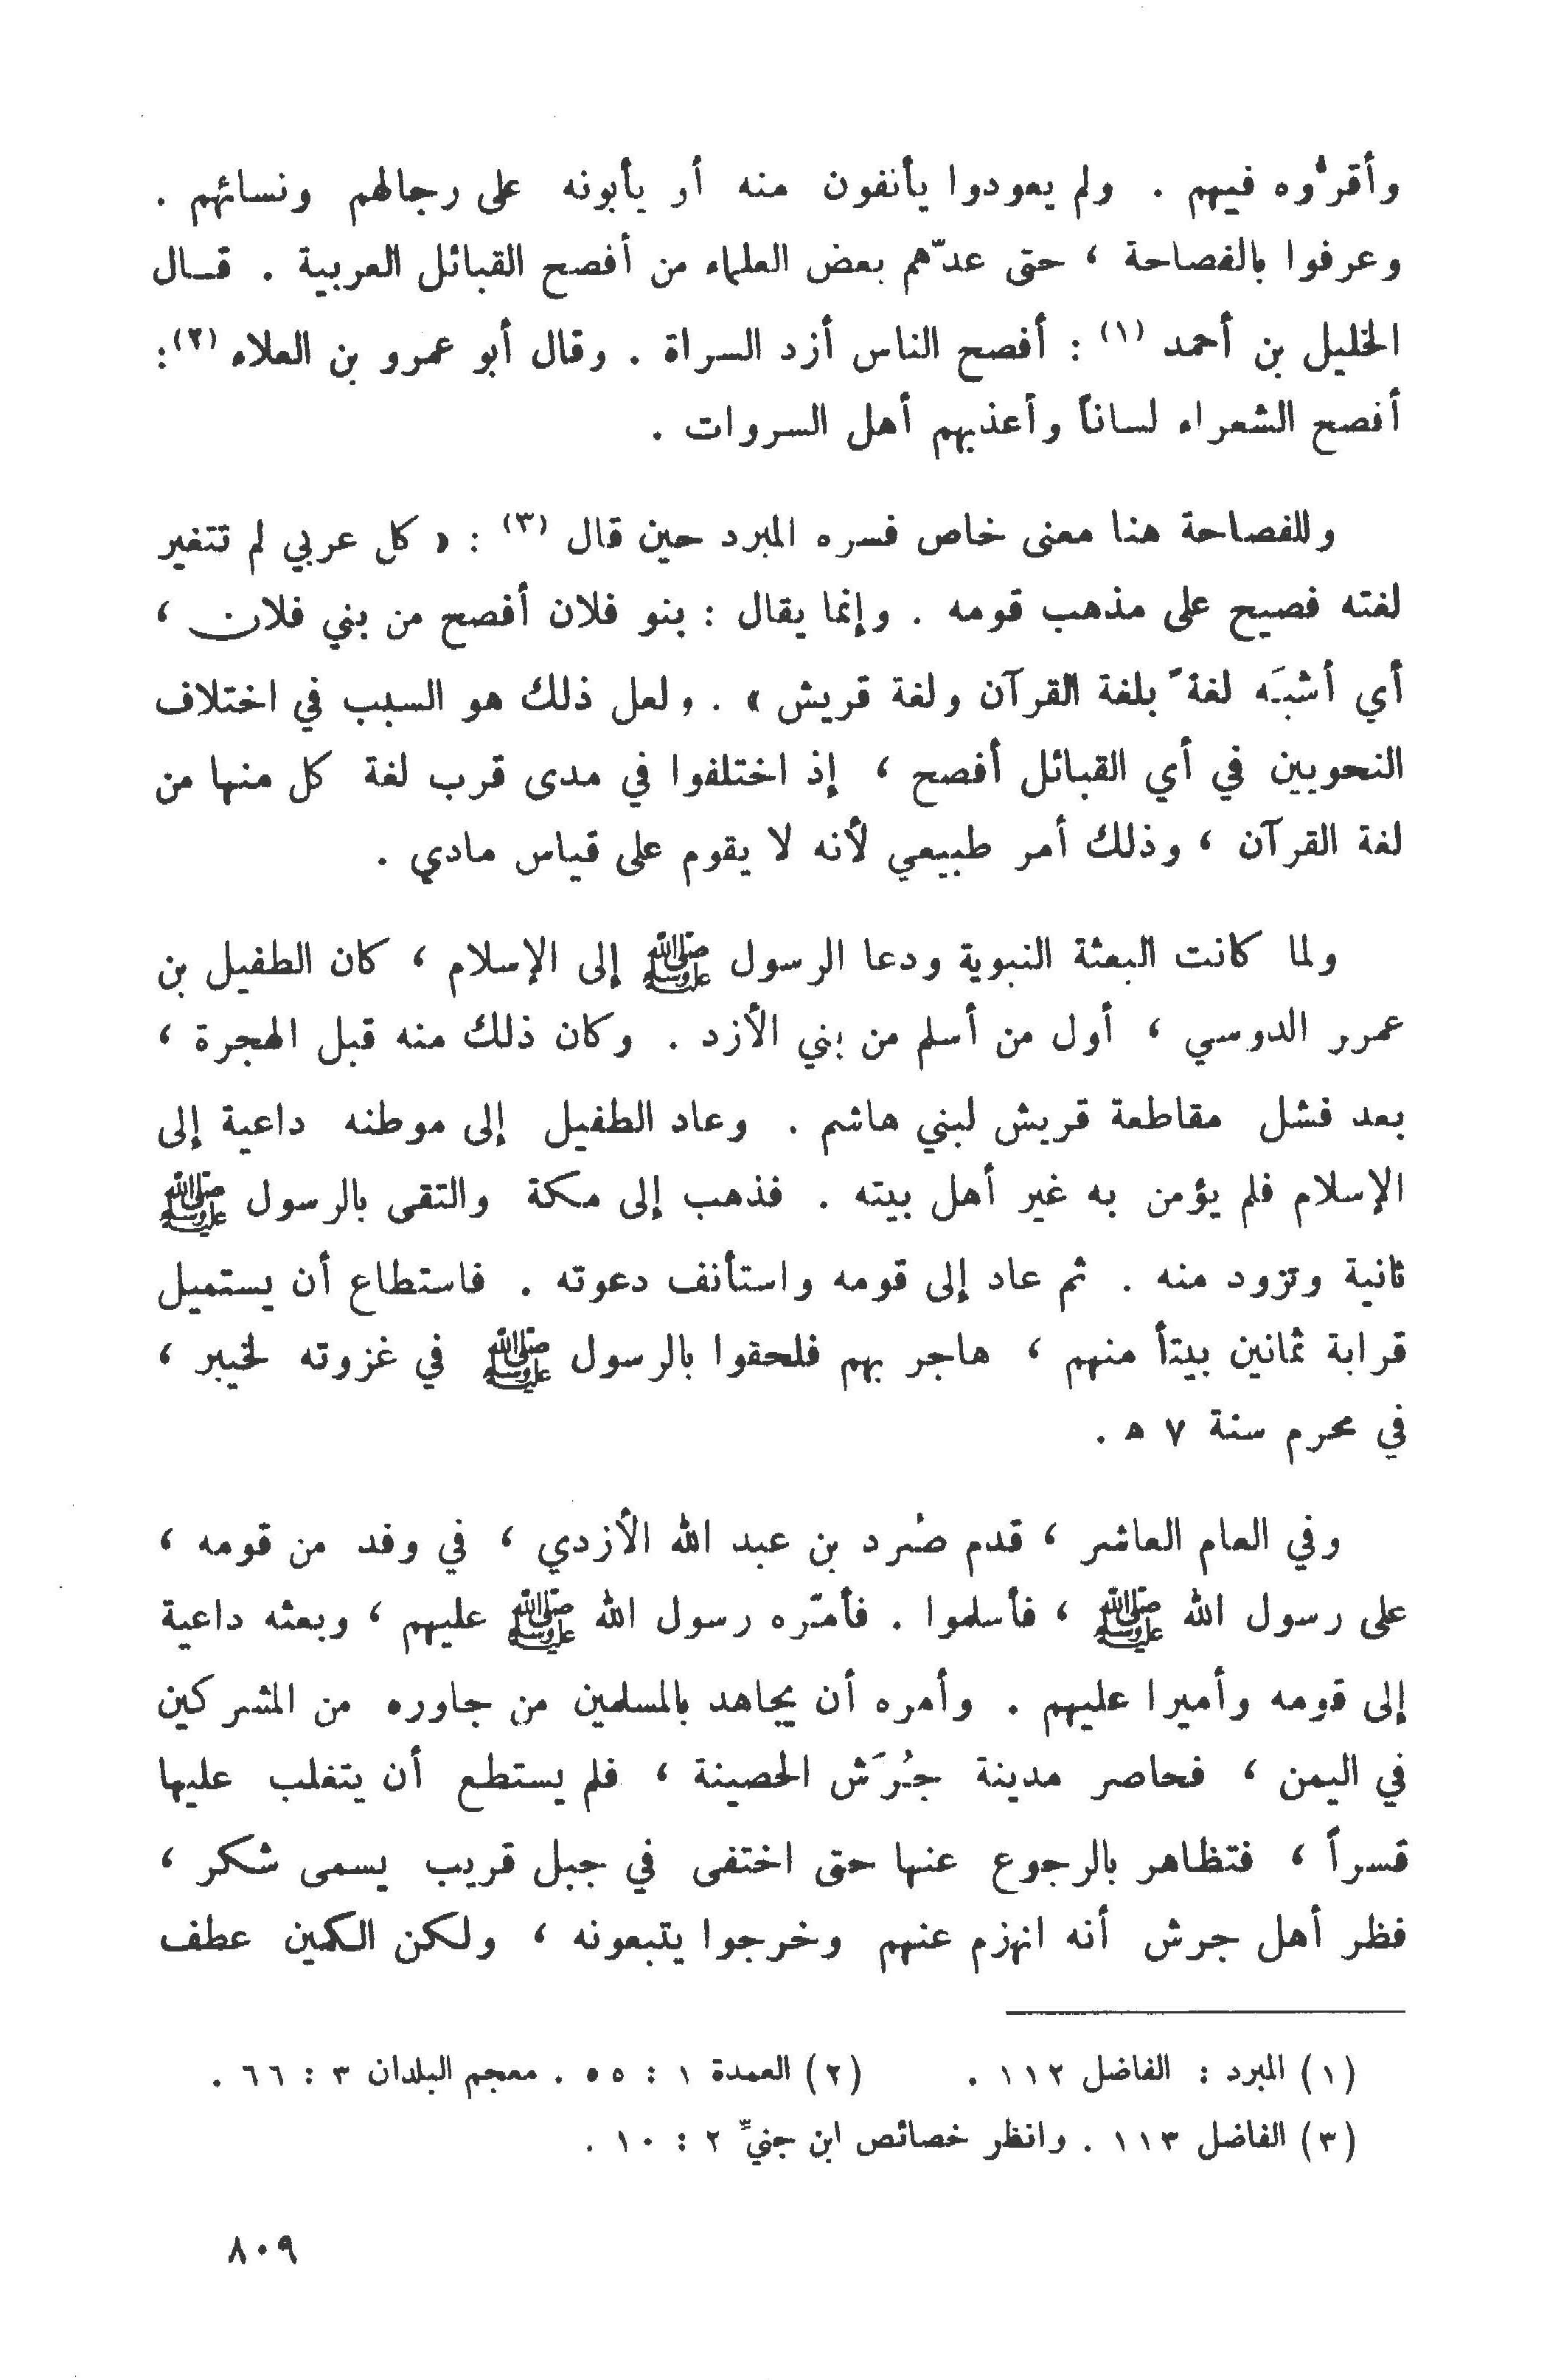 وأقرُّوه فيهم . ولم يعودوا يأنفون منه أو يأبونه على رجالهم ونسائهم .
وعرفوا بالفصاحة ، حتى عدّهم بعض العلماء من أفصح القبائل العربية . قال
الخليل بن أحمد (١) : أفصح الناس أزد السراة . وقال أبو عمرو بن العلاء (٢):
أفصح الشعراء لساناً وأعذبهم أهل السروات .
وللفصاحة هنا معنى خاص فسره المبرد حين قال (٣) : « كل عربي لم تتغير
لغته فصيح على مذهب قومه . وإنما يقال : بنو فلان أفصح من بني فلان ،
أي أشبَه لغةً بلغة القرآن ولغة قريش » . ولعل ذلك هو السبب في اختلاف
النحويين في أي القبائل أفصح ، إذ اختلفوا في مدى قرب لغة كل منها من
لغة القرآن ، وذلك أمر طبيعي لأنه لا يقوم على قياس مادي .
ولما كانت البعثة النبوية ودعا الرسول ﷺ إلى الإسلام ، كان الطفيل بن
عمرو الدوسي ، أول من أسلم من بني الأزد . وكان ذلك منه قبل الهجرة ،
بعد فشل مقاطعة قريش لبني هاشم . وعاد الطفيل إلى موطنه داعية إلى
الإسلام فلم يؤمن به غير أهل بيته . فذهب إلى مكة والتقى بالرسول ﷺ
ثانية وتزود منه . ثم عاد إلى قومه واستأنف دعوته . فاستطاع أن يستميل
قرابة ثمانين بيتاً منهم ، هاجر بهم فلحقوا بالرسول ﷺ في غزوته لخيبر ،
في محرم سنة ٧ ه .
وفي العام العاشر ، قدم صُرد بن عبد الله الأزدي ، في وفد من قومه ،
على رسول الله ﷺ ، فأسلموا . فأمّره رسول الله ﷺ عليهم ، وبعثه داعية
إلى قومه وأميرا عليهم . وأمره أن يجاهد بالمسلمين من جاوره من المشركين
في اليمن ، فحاصر مدينة جُرَش الحصينة ، فلم يستطع أن يتغلب عليها
قسراً ، فتظاهر بالرجوع عنها حتى اختفى في جبل قريب يسمى شكر ،
فظر أهل جرش أنه انهزم عنهم وخرجوا يتبعونه ، ولكن الكمين عطف
(١) المبرد : الفاضل ١١٢ . (٢) العمدة ١ : ٥٥ . معجم البلدان ٣ : ٦٦ .
(٣) الفاضل ١١٣ . وانظر خصائص ابن جنيّ ٢ : ١٠ .
٨٠٩